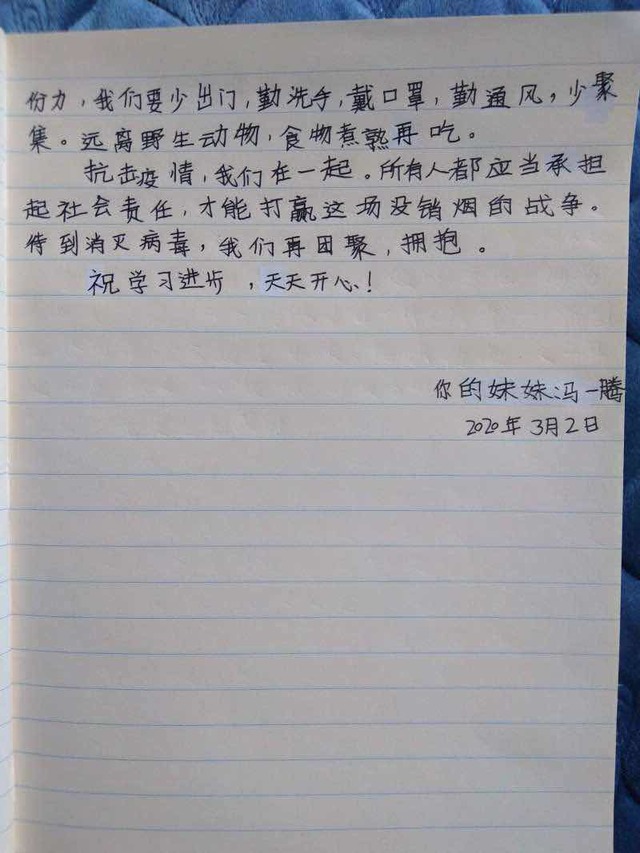 份力，我们要少出门，勤洗手，戴口罩，勤通风，少聚
集。远离野生动物，食物煮熟再吃。
抗击疫情，我们在一起。所有人都应当承担
起社会责任，才能打赢这场没销烟的战争。
待到消灭病毒，我们再团聚，拥抱。
祝学习进步，天天开心！
你的妹妹：冯一腾
2020年3月2日